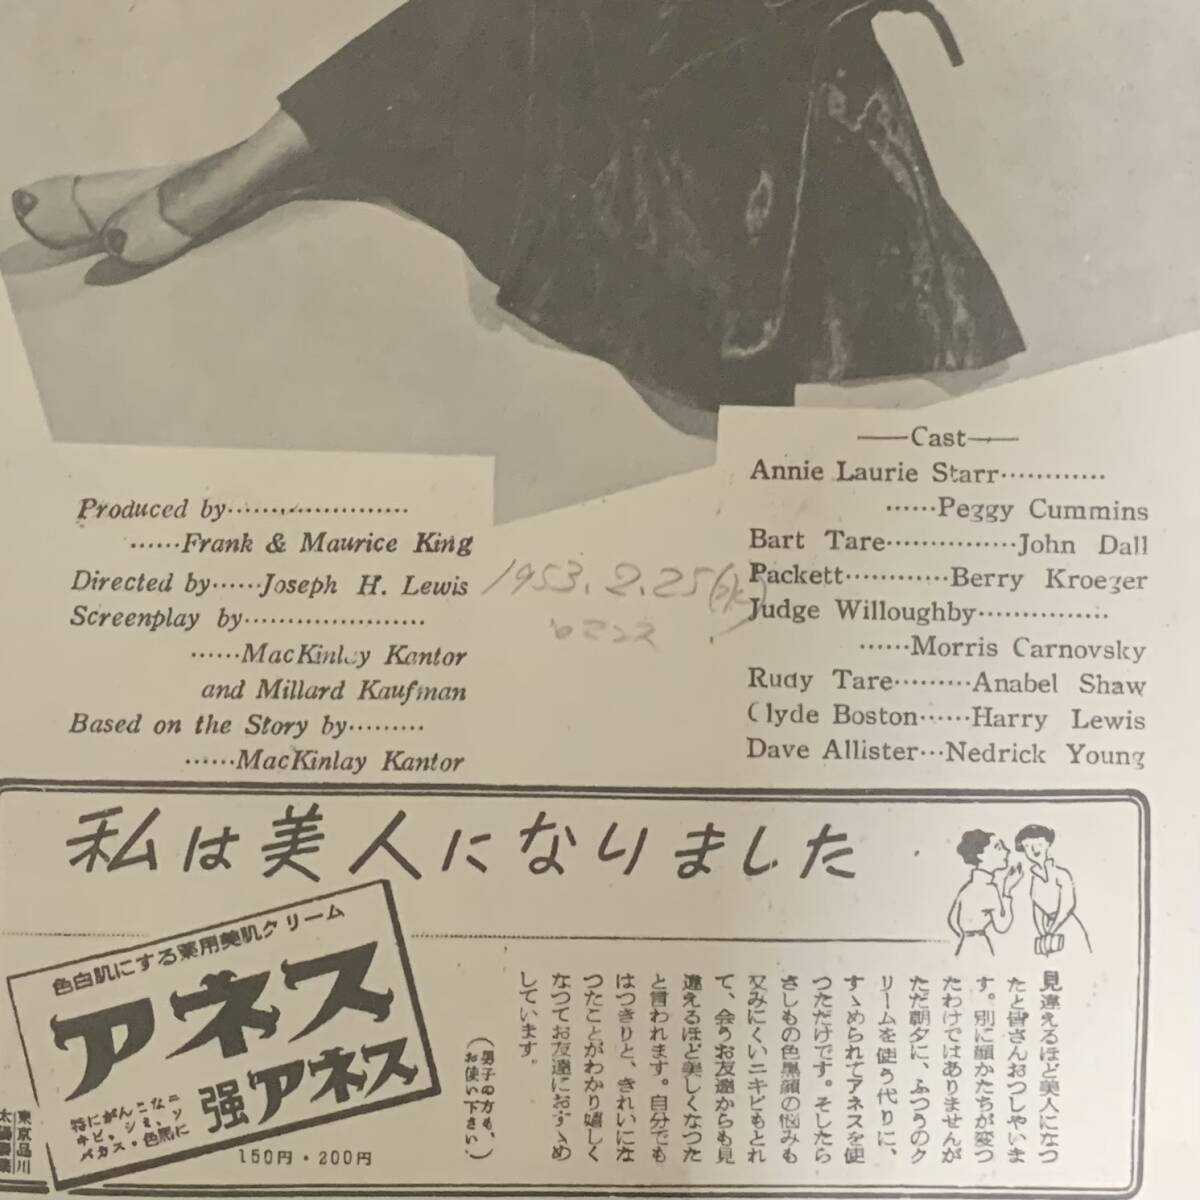 Produced by
Frank & Maurice King
Directed by······Joseph H. Lewis
Screenplay by
MacKinlay Kantor
and Millard Kaufman
Based on the Story by
MacKinlay Kantor
1953.2.25(水)
ロマンス
—Cast—
Annie Laurie Starr
Peggy Cummins
Bart Tare···············John Dall
Packett············Berry Kroeger
Judge Willoughby
Morris Carnovsky
Rudy Tare·········Anabel Shaw
Clyde Boston······Harry Lewis
Dave Allister···Nedrick Young
私は美人になりました
見違えるほど美人になつ
たと皆さんおつしやいま
す。別に顔かたちが変つ
たわけではありませんが
ただ朝夕に、ふつうのク
リームを使う代りに、
すゝめられてアネスを使
つただけです。そしたら
さしもの色黒顔の悩みも
又みにくいニキビもとれ
て、会うお友達からも見
違えるほど美しくなつた
と言われます。自分でも
はつきりと、きれいにな
つたことがわかり嬉しく
なつてお友達におすゝめ
しています。
(男子の方も、
お使い下さい。)
色白肌にする薬用美肌クリーム
アネス
強アネス
特にがんこなニ
キビ、シミ、ソ
バカス・色黒に
150円・200円
東京品川